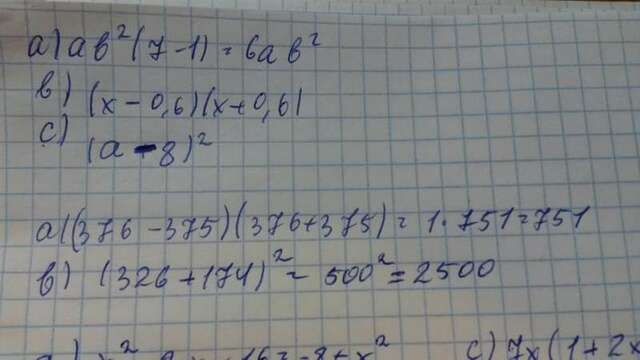 a) ab²(7-1) = 6ab²
b) (x - 0,6)(x+0,6)
c) (a - 8)²
a) (376 - 375)(376+375) = 1·751=751
b) (326 + 174)² = 500² = 2500
c) 7x(1+2x